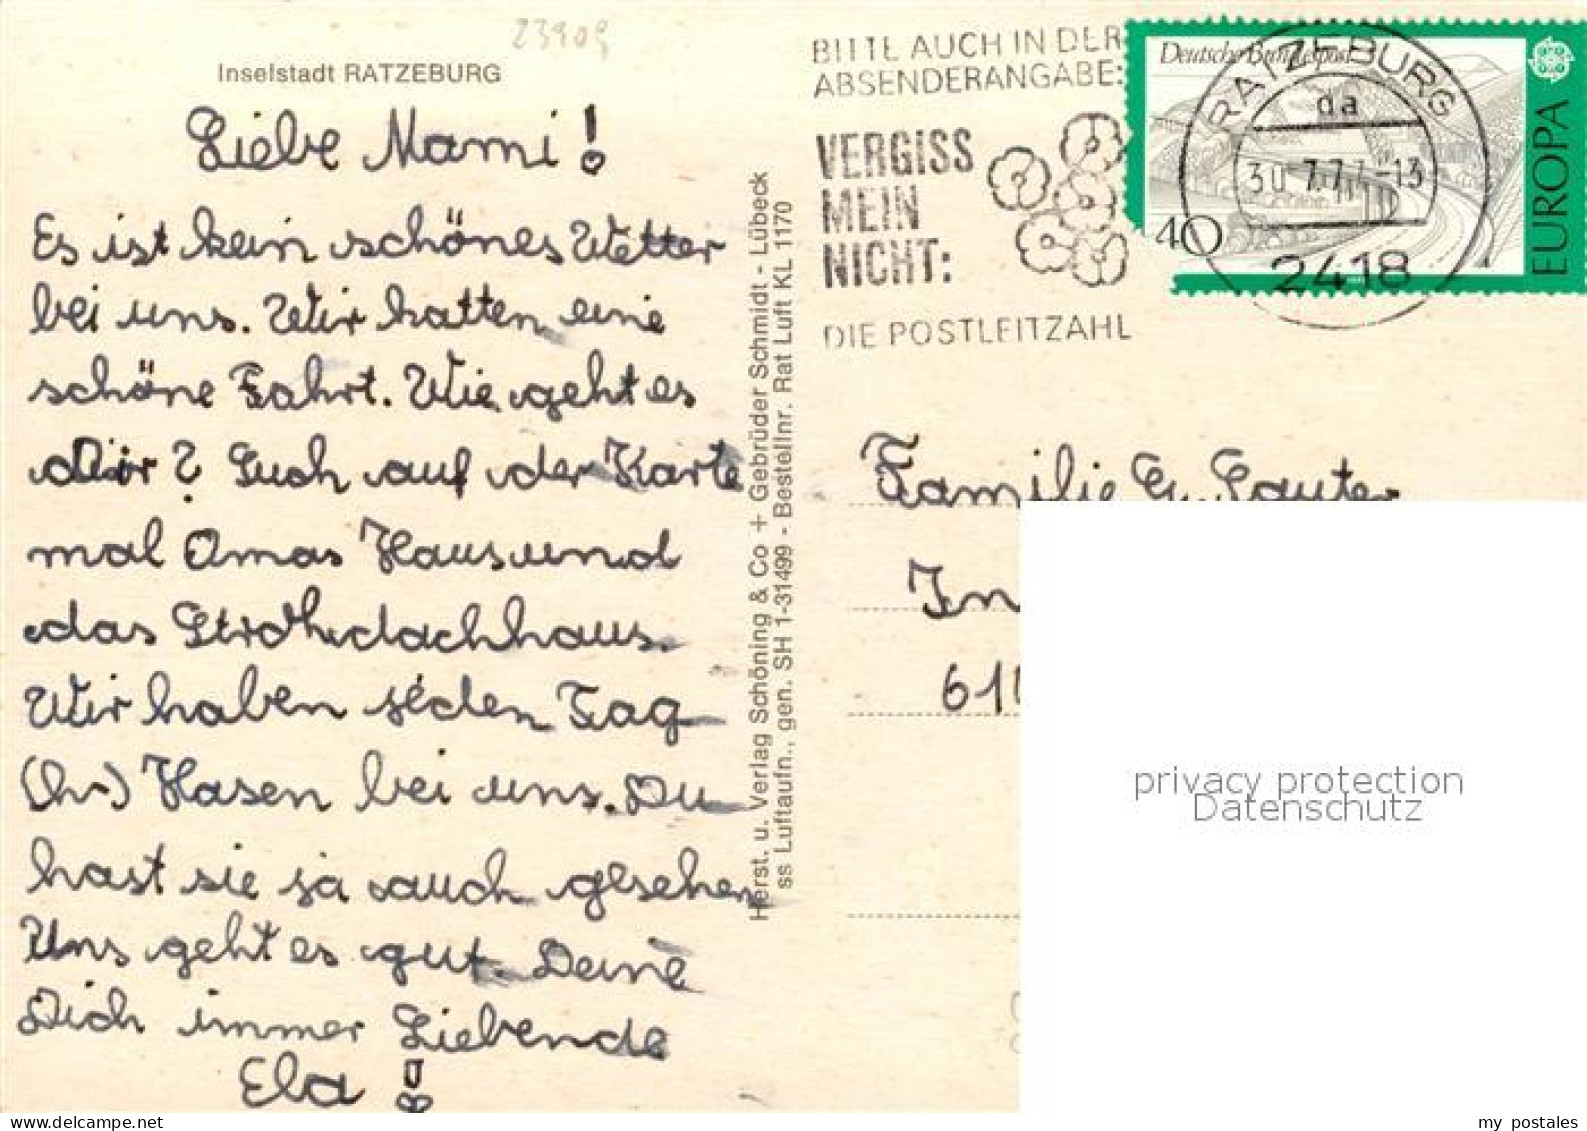 23909
Inselstadt RATZEBURG
Liebe Mami!
Es ist kein schönes Wetter
bei uns. Wir hatten eine
schöne Fahrt. Wie geht es
dir? Such auf der Karte
mal Omas Haus und
das Strohdachhaus.
Wir haben jeden Tag
Hasen bei uns. Du
hast sie ja auch gesehen
Uns geht es gut. Deine
Dich immer Liebende
Ela!
Herst. u. Verlag Schöning & Co + Gebrüder Schmidt - Lübeck
ss Luftaufn., gen. SH 1-31499 - Bestellnr. Rat Luft KL 1170
BITTE AUCH IN DER
ABSENDERANGABE:
VERGISS
MEIN
NICHT:
DIE POSTLEITZAHL
Deutsche Bundespost
40
EUROPA
RATZEBURG
da
30.-7.77-13
2418
Familie G. Sauter
In
61
privacy protection
Datenschutz
my postales